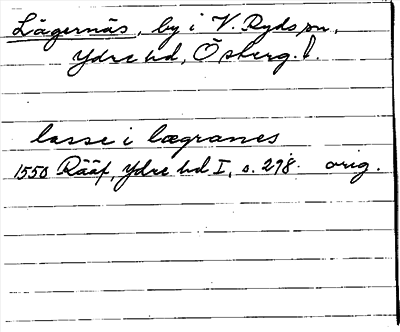 Lägernäs, by i V. Ryds sn,
Ydre hd, Österg. l.
lasse i lægranes
1550 Rääf, Ydre hd I, s. 298. orig.